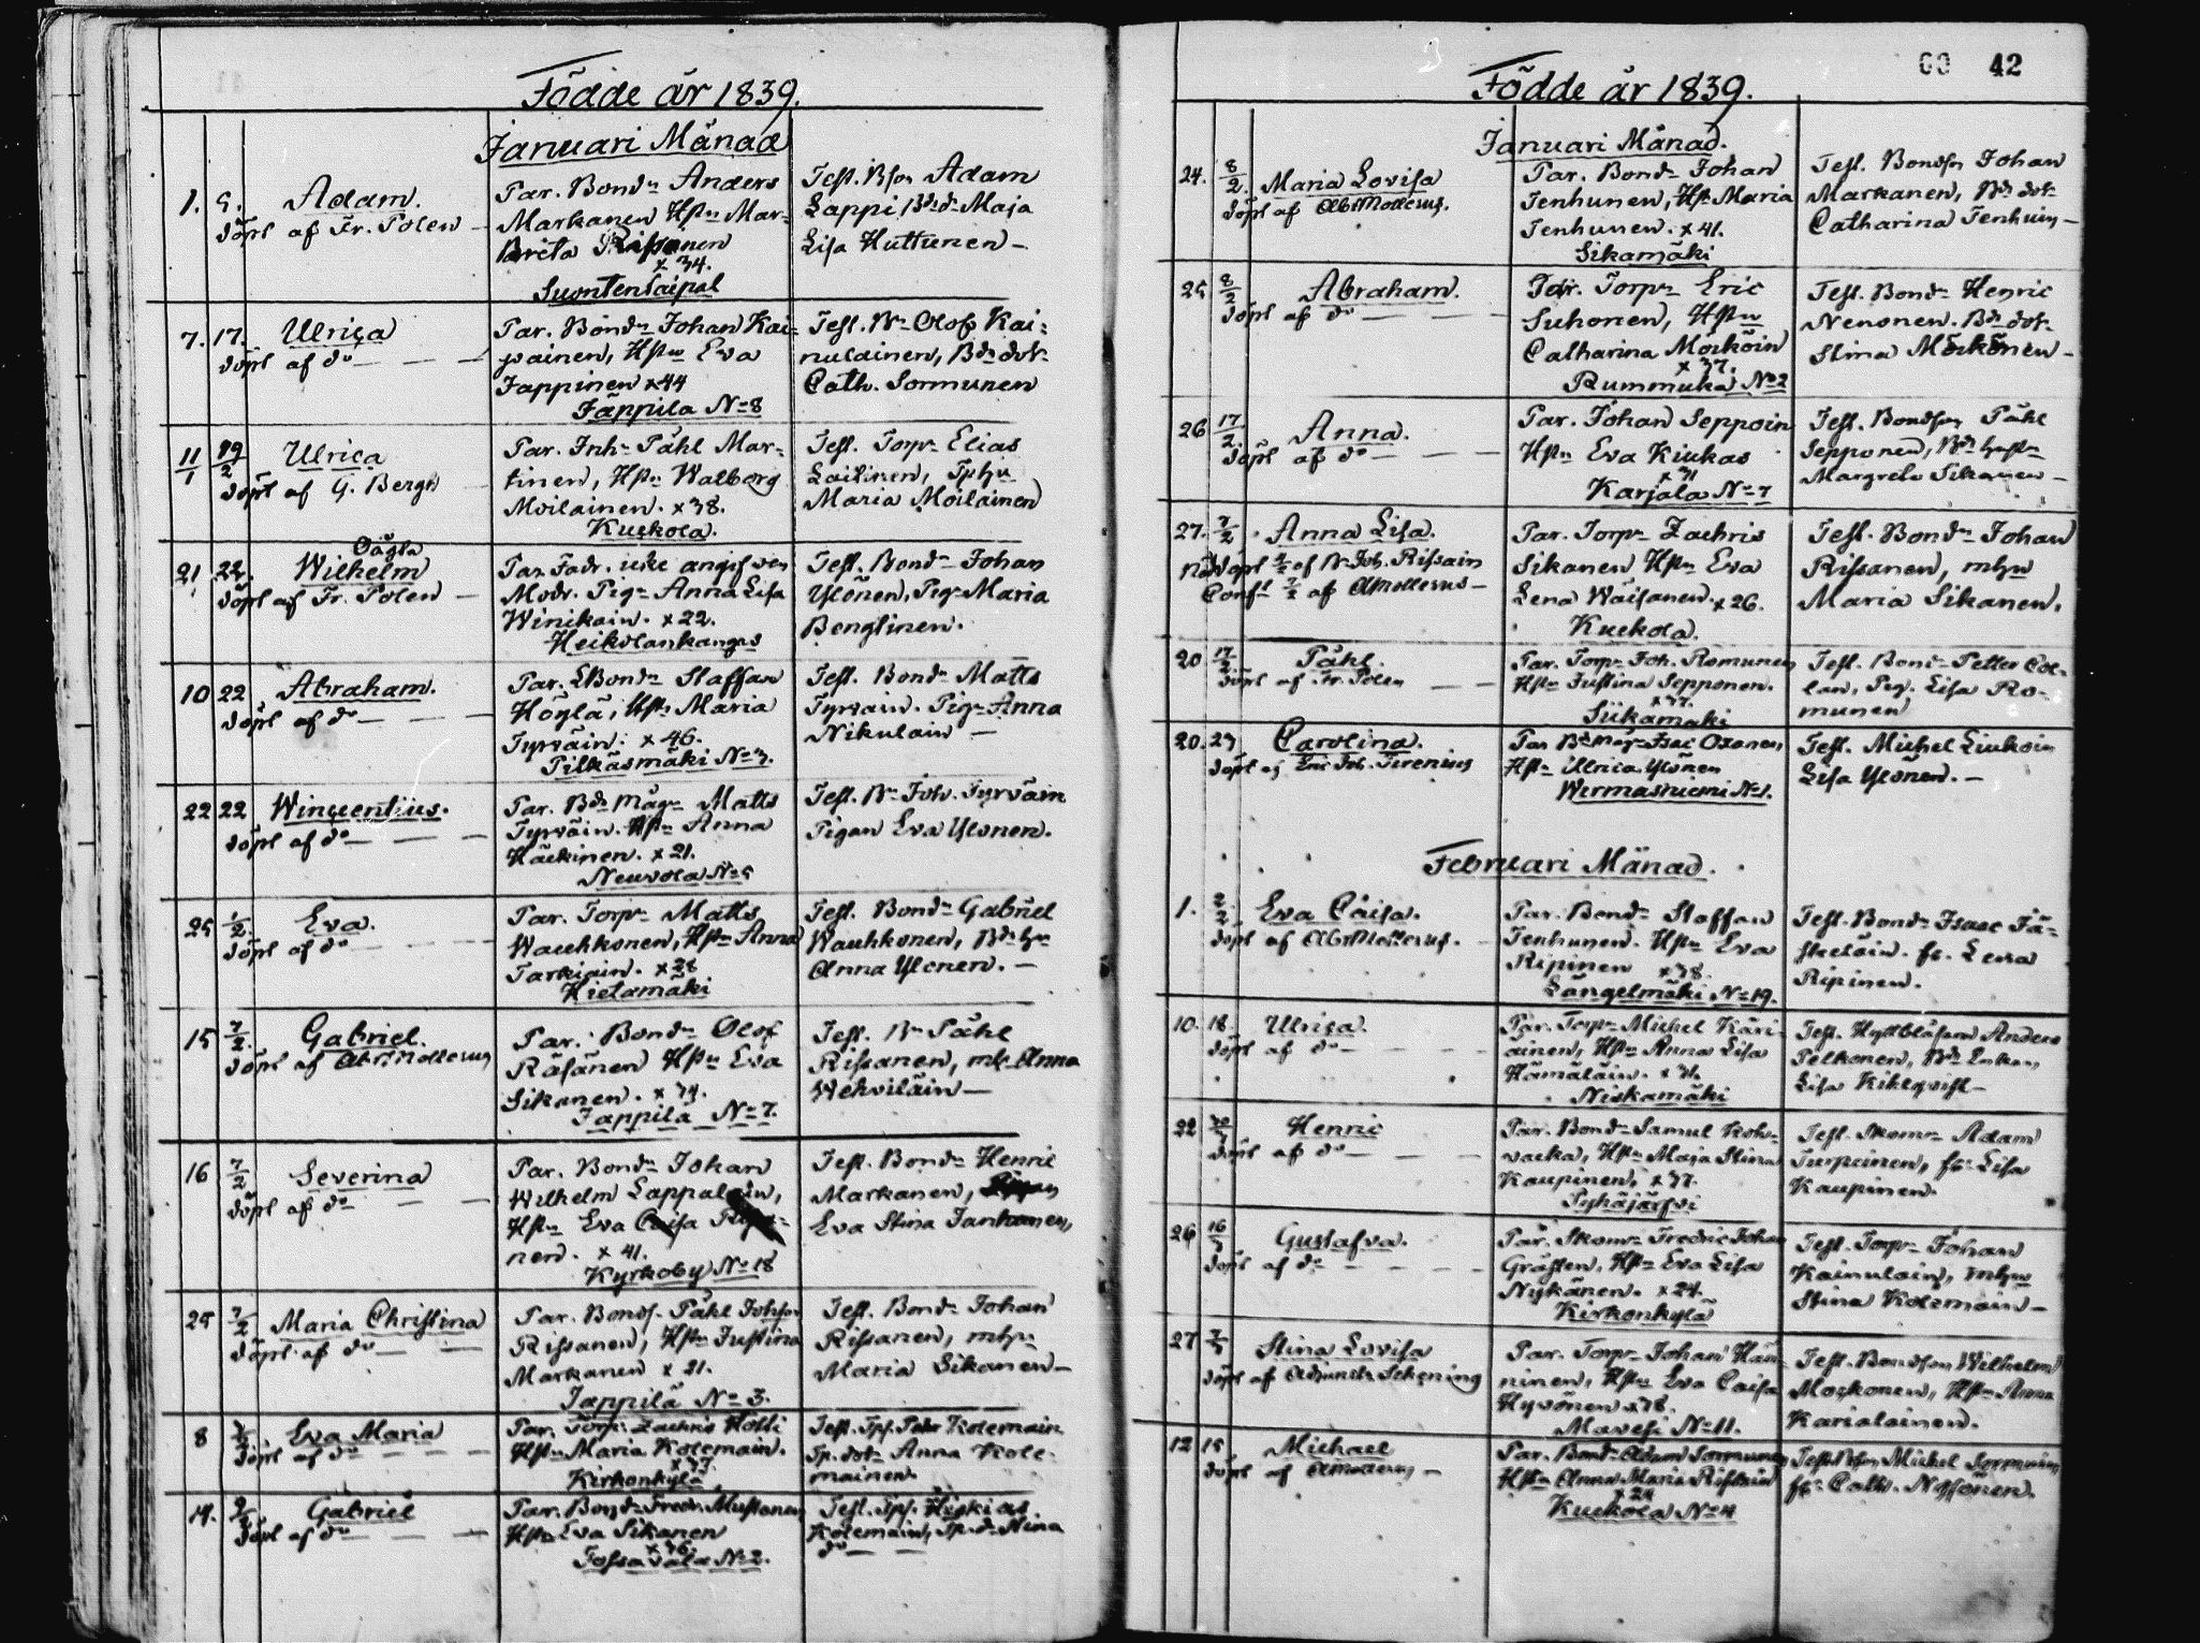 Födde år 1839.
Januari Månad
1. 9. Adam.
döpt af Fr. Polen
Par. Bondn Anders
Markanen Hstu Mar-
Brita Rissanen
x 34.
Suontentaipal
Test. Bson Adam
Lappi Bd.dr Maja
Lisa Huttunen
7. 17. Ulrica
döpt af do
Par. Bondn Johan Kai=
painen, Hstu Eva
Jappinen x 44
Jäppilä No 8
Test. Bn Olof Kai=
nulainen, Bds dotr
Cath. Sormunen
11/1 Ulrica
döpt af G. Bergh
Par. Inhr Påhl Mar-
tinen, Hstu Walborg
Moilainen. x 38.
Kuckola.
Test. Torpr Elias
Laitinen,
Maria Moilainen
21 22. Oägta
Wilhelm
döpt af Fr. Polen
Par. Fadr. icke angifven
Modr. Pign Anna Lisa
Winikain. x 22.
Heikolankangas
Test. Bondn Johan
Ylönen, Pig. Maria
Benglinen.
10 22 Abraham.
döpt af do
Par. Bondn Staffan
Höylä, Hstu Maria
Tyrväin. x 46.
Pilkäsmäki No 3.
Test. Bondn Matts
Tyrväin. Pign Anna
Nikulain
22 22 Wincentius.
döpt af do
Par. Bds Mågn Matts
Tyrväin. Hstu Anna
Häckinen. x 21.
Neuvola No 5
Test. Bn Joh. Tyrväin
Pigan Eva Ylönen.
25 1/2. Eva.
döpt af do
Par. Torpr Matts
Wauhkonen, Hstu Anna
Tarkiain. x 28
Hietamäki
Test. Bondn Gabriel
Wauhkonen, Bds hu
Anna Ylönen.
15 7/2. Gabriel.
döpt af Abr. Mollerus
Par. Bondn Olof
Räsänen Hstu Eva
Sikanen. x 34.
Jappila No 7.
Test. Bn Påhl
Rissanen, mh. Anna
Wehviläin
16 7/2 Severina
döpt af do
Par. Bondn Johan
Wilhelm Lappalain,
Hstu Eva Caisa
nen. x 41.
Kyrkoby No 18
Test. Bondn Henric
Markanen,
Eva Stina Janhonen,
25 7/2 Maria Christina
döpt af do
Par. Bonds. Påhl Johsn
Rissanen, Hstu Justina
Markanen x 21.
Jappilä No 3.
Test. Bondn Johan
Rissanen, mhu
Maria Sikanen
8 Eva Maria
döpt af do
Par. Torpr Zachris Hölli
Hstu Maria Kolemain.
x 37.
Kirkonkylä
Test. Tps. Petter Kolemain
Tp. dotr Anna Kole-
mainen
14. Gabriel
döpt af do
Par. Bondn Fredr. Mustonen
Hstu Eva Sikanen
x 36.
Tossavala No 2.
Test. Tps. Hiskias
Kolemain, Tp. dr Stina
do
42
Födde år 1839.
Januari Månad.
24. 8/2. Maria Lovisa
döpt af Abr Mollerus.
Par. Bondn Johan
Tenhunen, Hstu Maria
Tenhunen. x 41.
Sikamäki
Test. Bondson Johan
Markanen, Bds dotr
Catharina Tenhuin
25 8/2 Abraham.
döpt af do
Torpn Eric
Suhonen, Hstu
Catharina Mörköin
x 37.
Rummuka No 2
Test. Bondn Henric
Nenonen. Bds dotr
Stina Mörkönen
26 17/2. Anna.
döpt af do
Par. Johan Seppoin
Hstu Eva Kiukas
x 31
Karjala No 7
Test. Bondson Påhl
Sepponen, Bds hustr
Margreta Sikanen
27. 7/2 Anna Lisa.
döpt af Bn Joh. Rissain
Conft 7/2 af AMollerus
Par. Torpr Zachris
Sikanen Hstu Eva
Lena Wäisänen. x 26.
Kuckola.
Test. Bondn Johan
Rissanen, mhu
Maria Sikanen.
20 17/2. Påhl.
döpt af Fr. Polen
Par. Torpr Joh. Romunen
Hstu Justina Sepponen.
x 37.
Siikamäki
Test. Bondn Petter Col-
lan, Pig. Lisa Ro-
munen
20. 23 Carolina.
döpt af Eric Joh. Tirenius
Par. Bds Måg Isac Oxanen
Hstu Ulrica Ylönen
Wirmasniemi No 1.
Test. Michel Liukoin
Lisa Ylönen.
Februari Månad.
1. 2/2 Eva Caisa.
döpt af Abr Mollerus.
Par. Bondn Staffan
Tenhunen. Hstu Eva
Ripinen x 38.
Längelmäki No 19.
Test. Bondn Isaac Jä-
skeläin. fr. Lena
Ripinen.
10. 18. Ulrica.
döpt af do
Par. Torpr Michel Käri-
ainen, Hstu Anna Lisa
Hämäläin. x 31.
Niskamäki
Test. Hyttblåsaren Anders
Pelkonen, Bds Enkan
Lisa Kihlqvist
22 Henric
döpt af do
Par. Bondn Samul Koh-
vacka, Hstu Maja Stina
Kaupinen, x 37.
Pyhäjärfvi
Test. Skomr Adam
Turpeinen, fr. Lisa
Kaupinen.
26 16/3 Gustafva.
döpt af do
Par. Skomr Fredric Johan
Gråsten, Hstu Eva Lisa
Nykänen. x 24.
Kirkonkylä
Test. Torpr Johan
Kainulain, mhu
Stina Kolemain
27 Stina Lovisa
döpt af Adjuncten Schening
Par. Torpr Johan Hän-
ninen, Hstu Eva Caisa
Hyvönen x 38.
Mavesi No 11.
Test. Bondson Wilhelm
Morkonen, Hstu Anna
Karialainen.
12 15 Michael
döpt af AMollerus
Par. Bondn Adam Sormunen
Hstu Anna Maria Rissain
x 24
Kuckola No 4
Test. Bson Michel Sormuin
fr. Cath. Nyssönen.